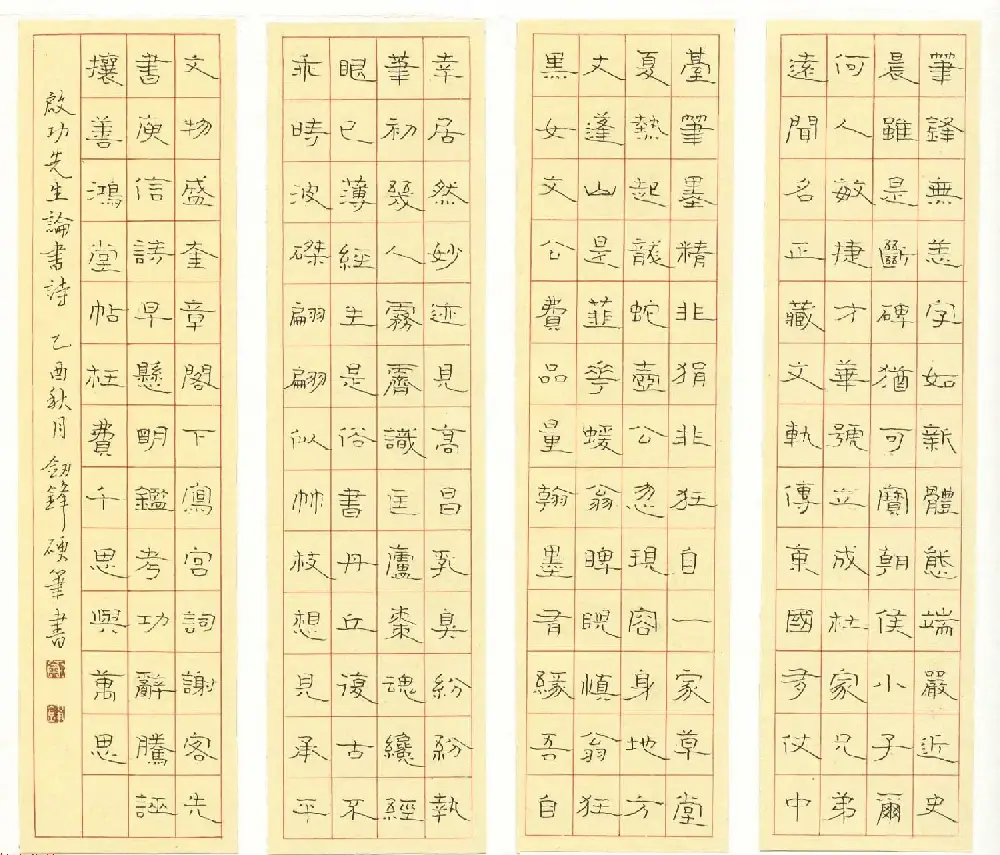 筆鋒無恙字如新體態端嚴近史
晨雖是斷碑猶可寶朝侯小子爾
何人敏捷才華號立成杜家兄弟
遠聞名正藏文軌傳東國多仗中
臺筆墨精非狷非狂自一家草堂
夏熱起龍蛇壺公忽現容身地方
丈蓬山是韮華蝯翁睥睨慎翁狂
黑女文公費品量翰墨有緣吾自
幸居然妙迹見高昌乳臭紛紛執
筆初幾人霧霽識匡廬棗魂纔經
眼已薄經生是俗書丹丘復古不
乖時波磔翩翩似竹枝想見承平
文物盛奎章閣下寫宮詞謝客先
書庾信詩早懸明鑑考功辭騰誣
攘善鴻堂帖枉費千思與萬思
啟功先生論書詩 乙酉秋月 劍鋒硬筆書